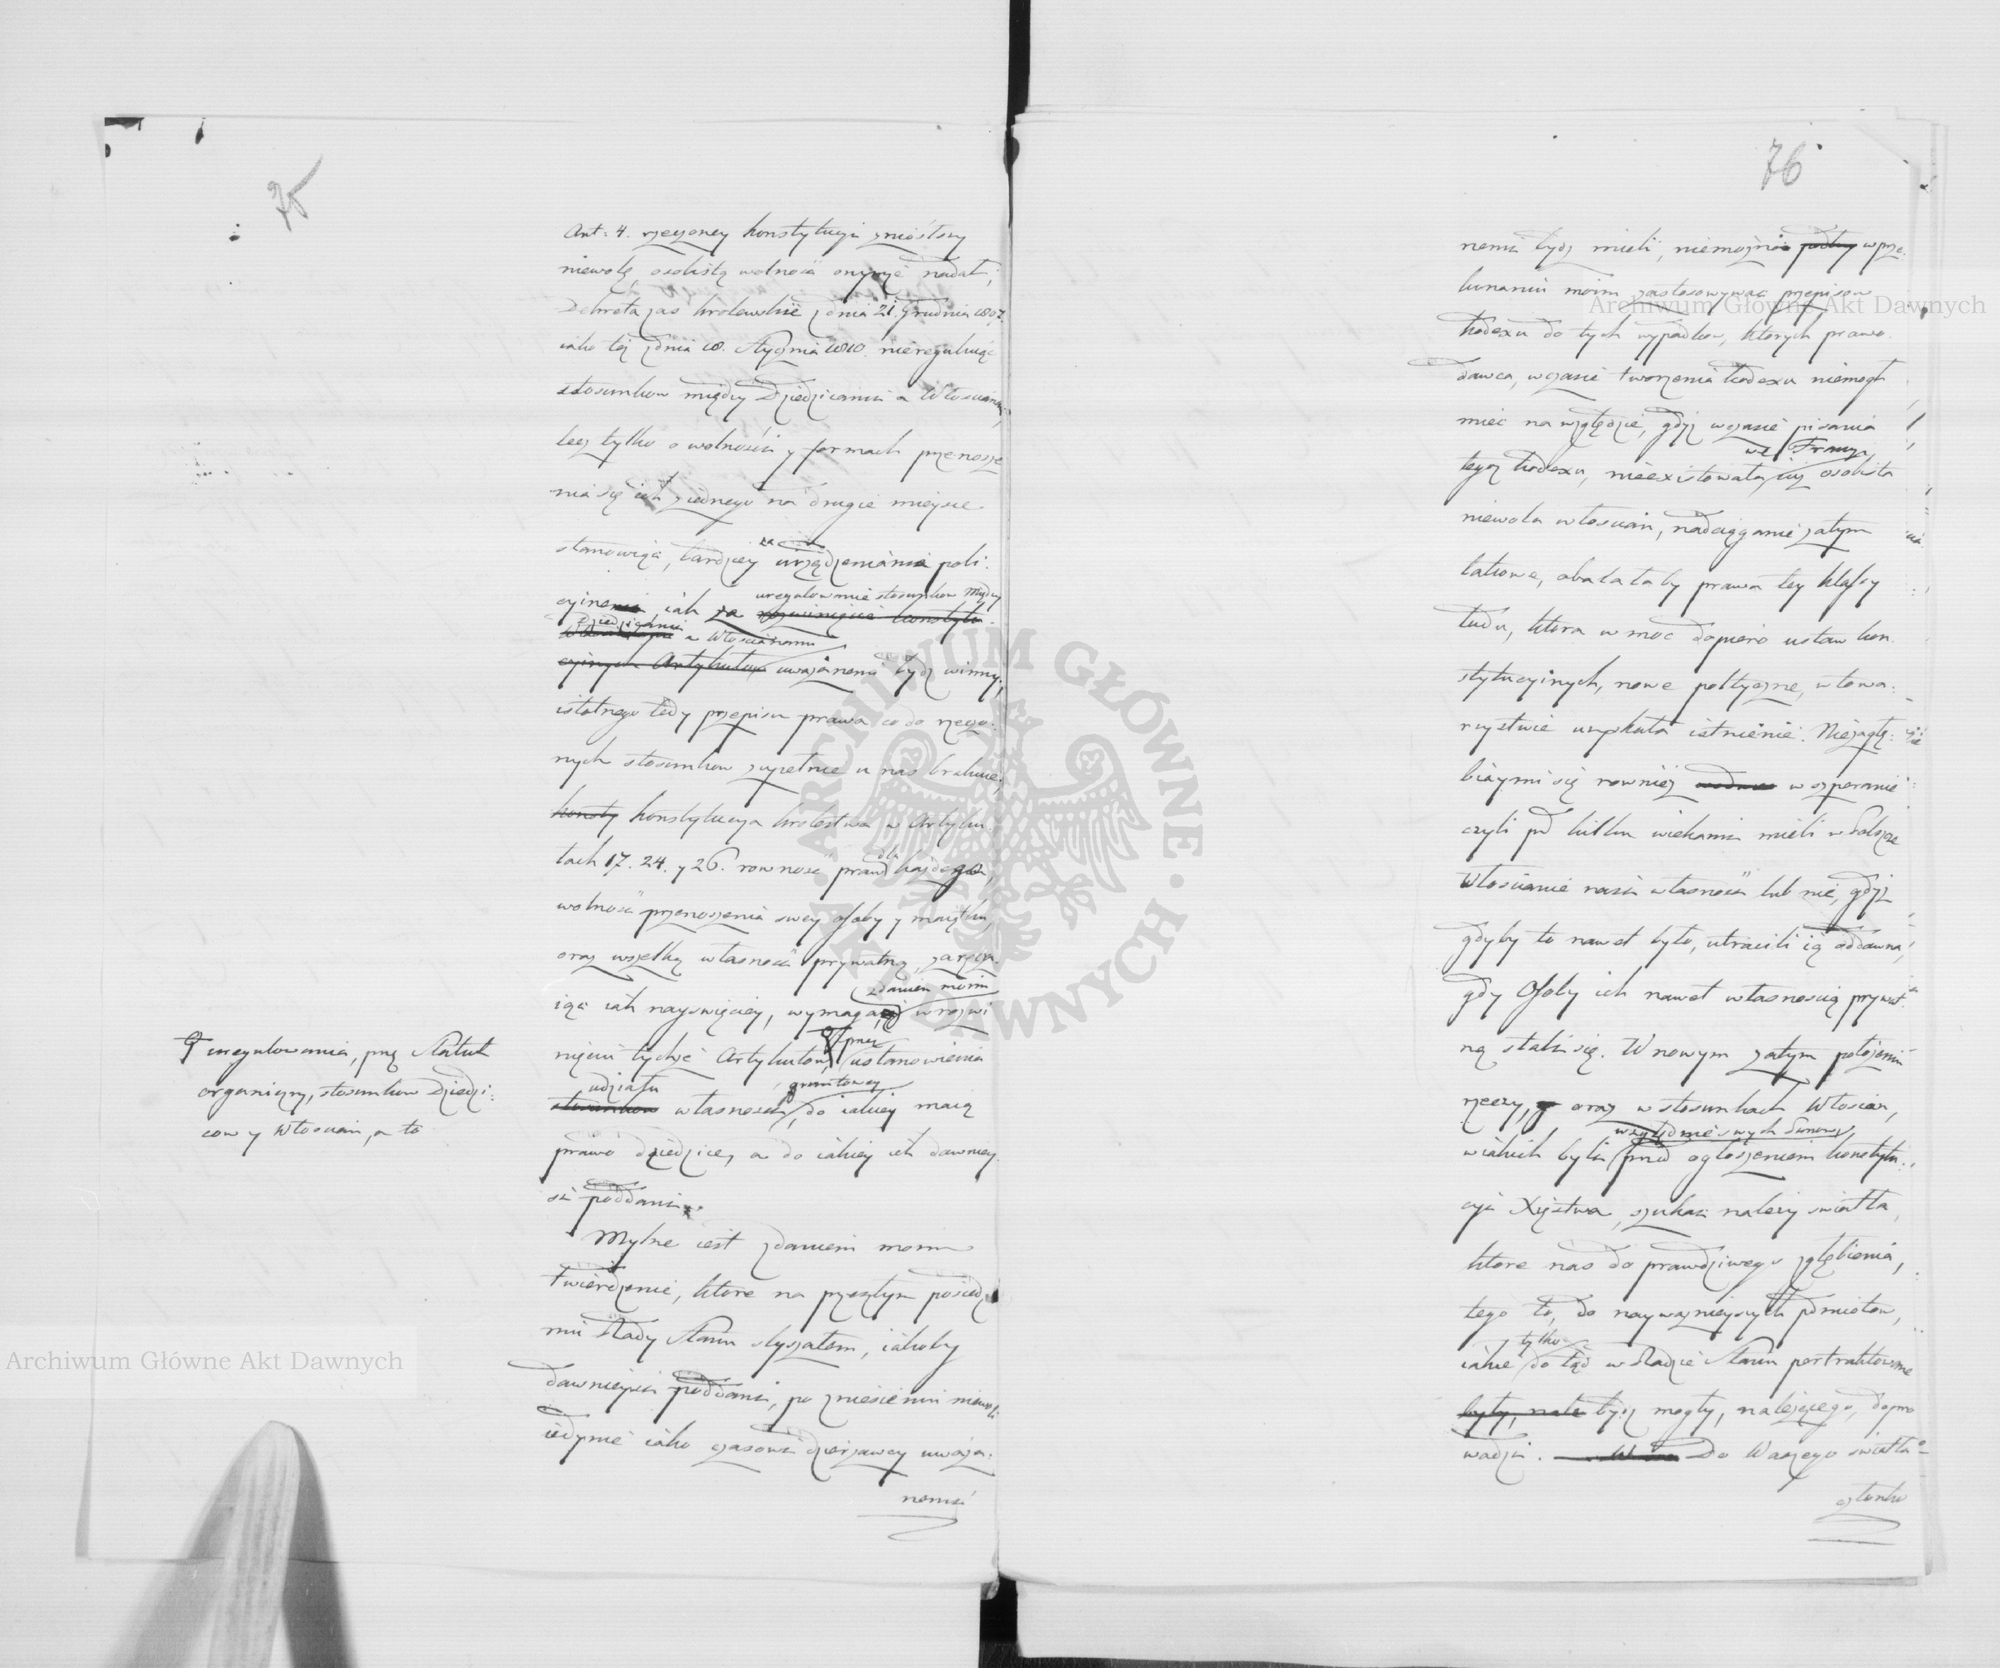 75
Art: 4. rzeczoney konstytucyi zniosłszy
niewolę, osobistą wolność onymże nadał,
Dekreta zas krolewskie z dnia 21. Grudnia 1807.
iako też z dnia 18. Stycznia 1810. nieregulując
stosunkow między Dziedzicami a Włoscianami,
lecz tylko o wolności y formach przenosze
nia się ich z iednego na drugie mieysce
stanowiąc, bardziey za urządzenia poli:
cyine, iak za rozwinięcie konstytu
uregulowanie stosunkow między
Dziedzicami a Włoscianami
cyinych Artykułow uważanemi bydź winny,
istotnego tedy przepisu prawa co do rzeczo:
nych stosunkow zupełnie u nas brakuie,
konsty konstytucya krolestwa w Artyku
łach 17. 24. y 26. rownosc prawa dla każdego,
wolność przenoszenia swey osoby y maiątku,
oraz wszelką własność prywatną, zaręcza
iąc iak nayswięciey, wymaga zdaniem moim w rozwi
nięciu tychże Artykułow, ustanowienia
udziału
stosunkow własnosci gruntowey, do iakiey maią
prawo dziedzice, a do iakiey ich dawniey
si poddani.
Mylne iest zdaniem moim
twierdzenie, ktore na przeszłym posiedze
niu Rady Stanu słyszałem, iakoby
dawnieysi poddani, po zniesieniu niewoli
iedynie iako czasowi dzierzawcy uważa:
nemi
uregulowania, przez Statut
organiczny, stosunkow Dziedzi:
cow y Włoscian, a to
76
nemi bydź mieli, niemożna podług w prze:
konaniu moim zastosowywać przepisow
kodexu do tych wypadkow, ktorych prawo
dawca, w czasie tworzenia kodexu niemogł
miec na względzie, gdyż w czasie pisania
tegoż kodexu, nieexistowała we Francyi iuż osobista
niewola włoscian, nadciąganie zatym
takowe, obalałaby prawa tey klassy
ludu, ktora w moc dopiero ustaw kon
stytucyinych, nowe polityczne, w towa:
rzystwie uzyskała istnienie. Niezagłę:
biaymi się rowniez w szperanie
czyli przed kilku wiekami mieli w Polszcze
Włoscianie nasi własność lub nie, gdyż
gdyby to nawet było, utracili ią oddawna,
gdy Osoby ich nawet własnoscią prywat
ną stali się. W nowym zatym położeniu
rzeczy, oraz w stosunkach Włoscian,
w iakich byli względnie swych Panow przed ogłoszeniem konstytu:
cyi Xięstwa, szukać należy swiatła,
ktore nas do prawdziwego zgłębienia,
tego to, do nayważnieyszych przedmiotow,
iakie tylko do tąd w Radzie Stanu pertraktowane
były, nale bydź mogły, należącego, dopro
wadzi. Do Waszego swiatła
członko
Archiwum Główne Akt Dawnych
Archiwum Główne Akt Dawnych
ARCHIWUM GŁÓWNE · AKT DAWNYCH ·